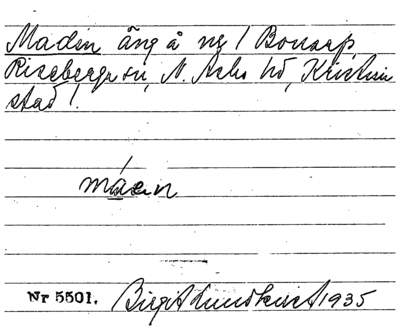 Maden äng å nr 1 Bonarp,
Riseberga sn, N. Åsbo hd, Kristian
stad l.
máεn
Nr 5501. Birgit Lundkvist 1935